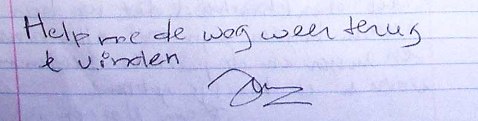 Help me de weg weer terug
te vinden